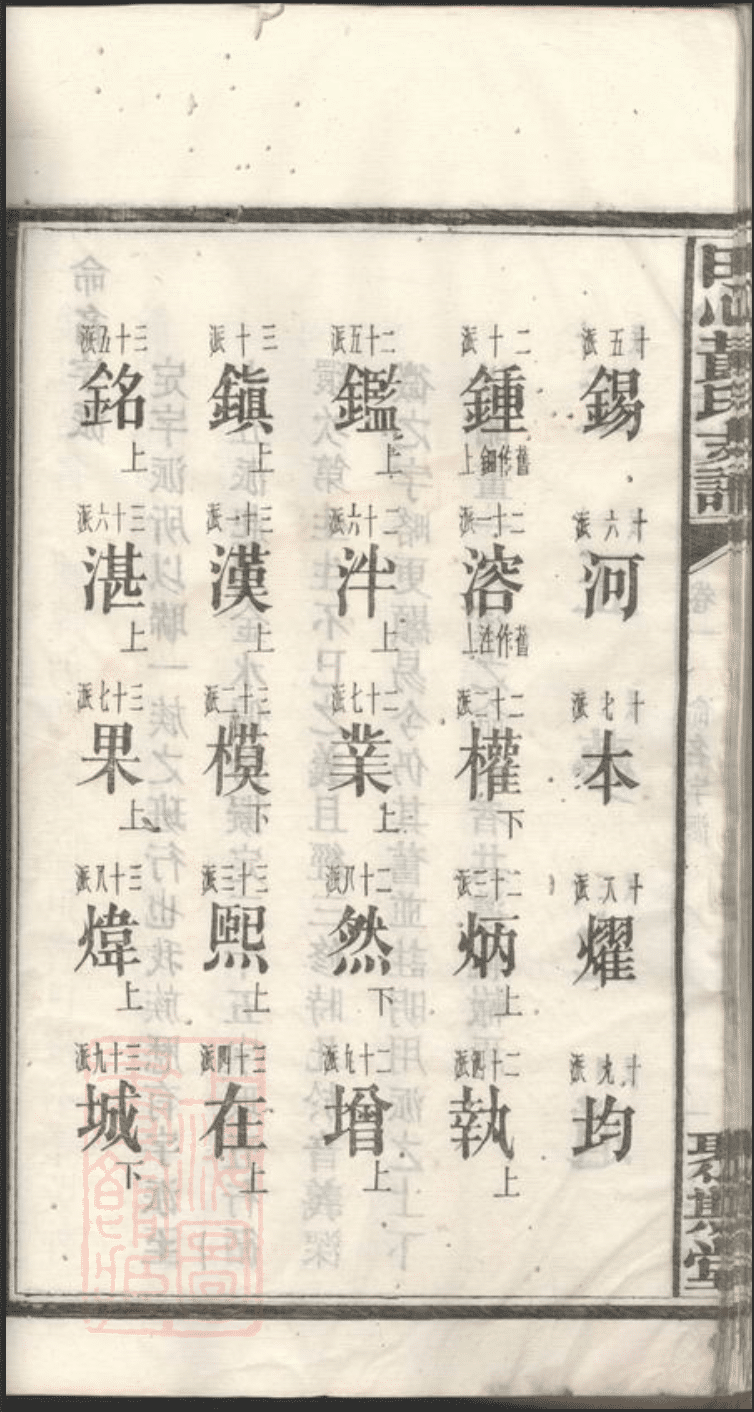 黃氏支譜
卷一
命名字派
斯堂
十五派
錫
十六派
河
十七派
本
十八派
燿
十九派
均
二十派
鍾
舊作鈿上
二十一派
溶
舊作注上
二十二派
權下
二十三派
炳上
二十四派
執上
二十五派
鑑上
二十六派
泮上
二十七派
業上
二十八派
然下
二十九派
增上
三十派
鎮上
三十一派
漢上
三十二派
模下
三十三派
熙上
三十四派
在上
三十五派
銘上
三十六派
湛上
三十七派
果上
三十八派
煒上
三十九派
城下